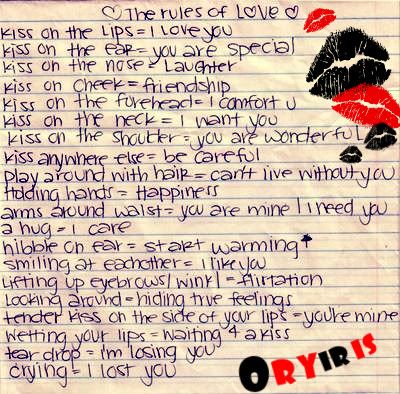 ♡ The rules of LOVE ♡
kiss on the Lips = I Love you
kiss on the ear = you are special
kiss on the nose = Laughter
kiss on cheek = friendship
kiss on the forehead = I comfort u
kiss on the neck = I want you
kiss on the shoulder = you are wonderful
kiss anywhere else = be careful
play around with hair = can't live without you
Holding hands = Happiness
arms around waist = you are mine I need you
a hug = I care
nibble on ear = start warming
smiling at eachother = I like you
Lifting up eyebrows/wink = flirtation
Looking around = hiding true feelings
tender kiss on the side of your lips = you're mine
wetting your lips = waiting 4 a kiss
tear drop = i'm losing you
crying = I lost you
ORYIRIS